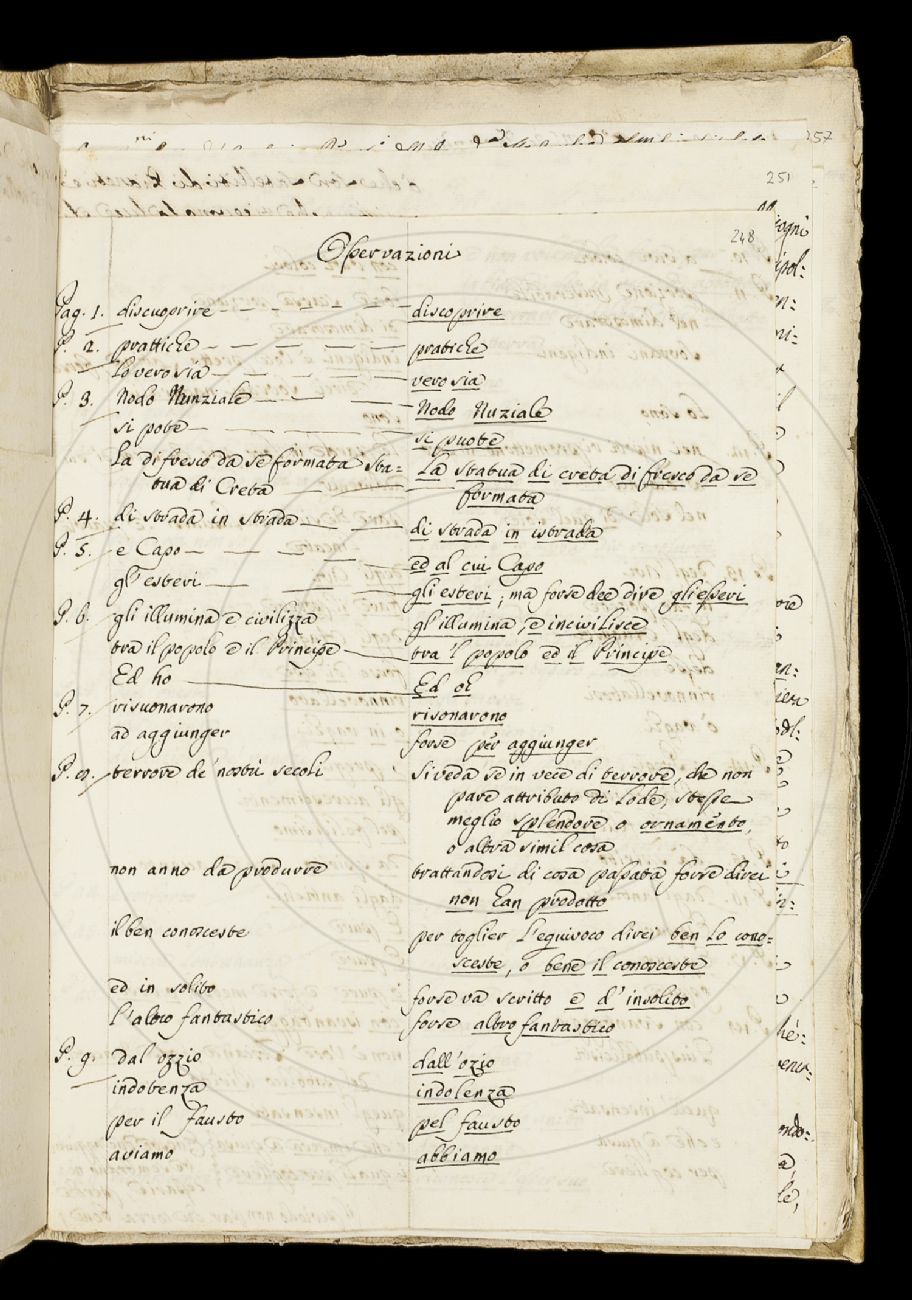 257
251
248
Osservazioni
Pag. 1. discuoprire — — — — — discoprire
P. 2. prattiche — — — — — pratiche
Lo verosia — — — — — verosia
P. 3. Nodo Nunziale — — — Nodo Nuziale
si pote — — — — si puote
La di fresco da se formata sta= La statua di creta di fresco da se
tua di Creta — — — formata
P. 4. di strada in strada — — di strada in istrada
P. 5. e Capo — — — — ed al cui Capo
gl' esteri — — — gli esteri; ma forse dee dire gli esseri
P. 6. gli illumina e civilizza gl' illumina, e incivilisce
tra il popolo e il Principe — tra 'l popolo ed il Principe
Ed ho — Ed oh
P. 7. risuonarono risonarono
ad aggiunger forse per aggiunger
P. 8. terrore de' nostri secoli si veda se in vece di terrore, che non
pare attributo di Lode, stesse
meglio splendore o ornamento,
o altra simil cosa
non anno da produrre trattandosi di cosa passata forse direi
non han prodotto
il ben conosceste per toglier l'equivoco direi ben lo cono=
sceste, o bene il conosceste
ed in solito forse va scritto e d' insolito
L'altro fantastico forse altro fantastico
P. 9. dal' ozzio dall' ozio
indotenza indolenza
per il Fausto pel fausto
aviamo abbiamo